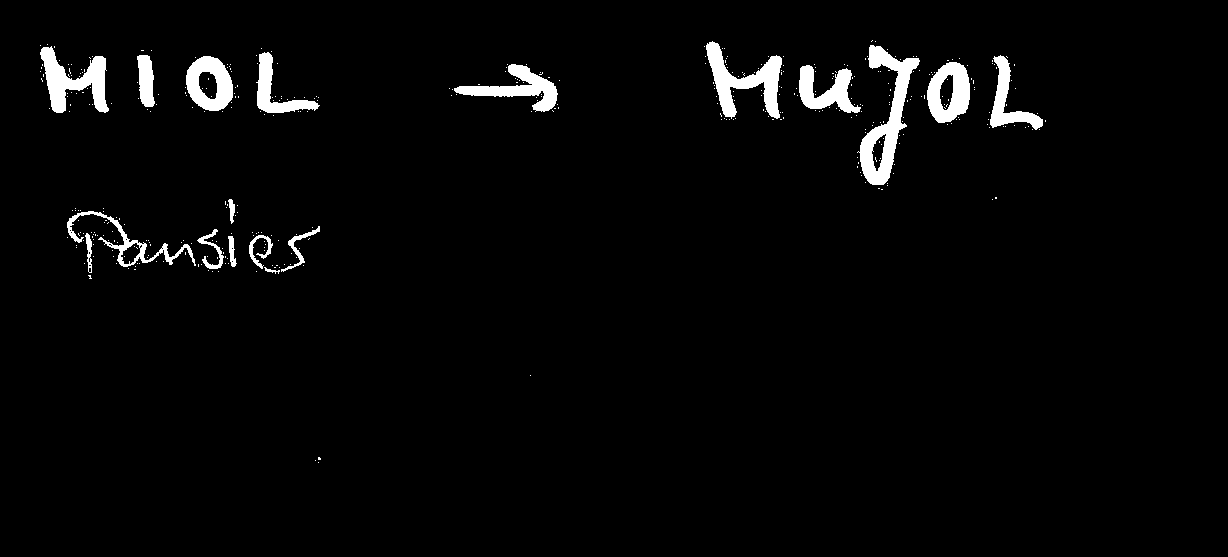 MIOL → MUJOL
Pansier